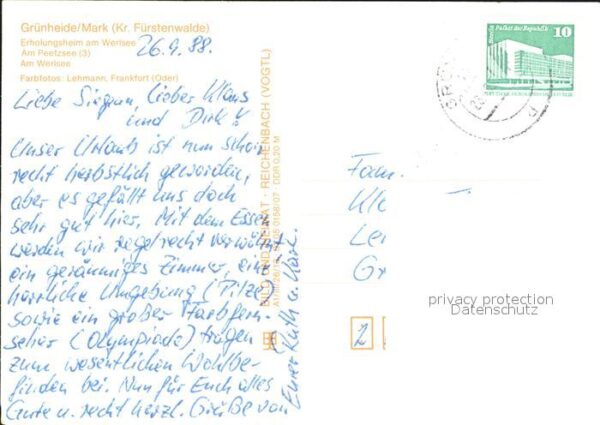 Grünheide/Mark (Kr. Fürstenwalde)
Erholungsheim am Werlsee
Am Peetzsee (3)
Am Werlsee
Farbfotos: Lehmann, Frankfurt (Oder)
26.9.88.
Liebe Sigrun, lieber Klaus
und Dirk!
Unser Urlaub ist nun schon
recht herbstlich geworden,
aber es gefällt uns doch
sehr gut hier. Mit dem Essen
werden wir regelrecht verwöhnt
ein geräumiges Zimmer, eine
herrliche Umgebung (Pilze)
sowie ein großer Farbfern-
seher (Olympiade) tragen
zum wesentlichen Wohlbe-
finden bei. Nun für Euch alles
Gute u. recht herzl. Grüße von
Eurer Kath u. Mark.
BILD UND HEIMAT · REICHENBACH (VOGTL)
DDR 0,20 M
Palast der Republik
10
Fam.
Kle
Lei
Gr
2
privacy protection
Datenschutz